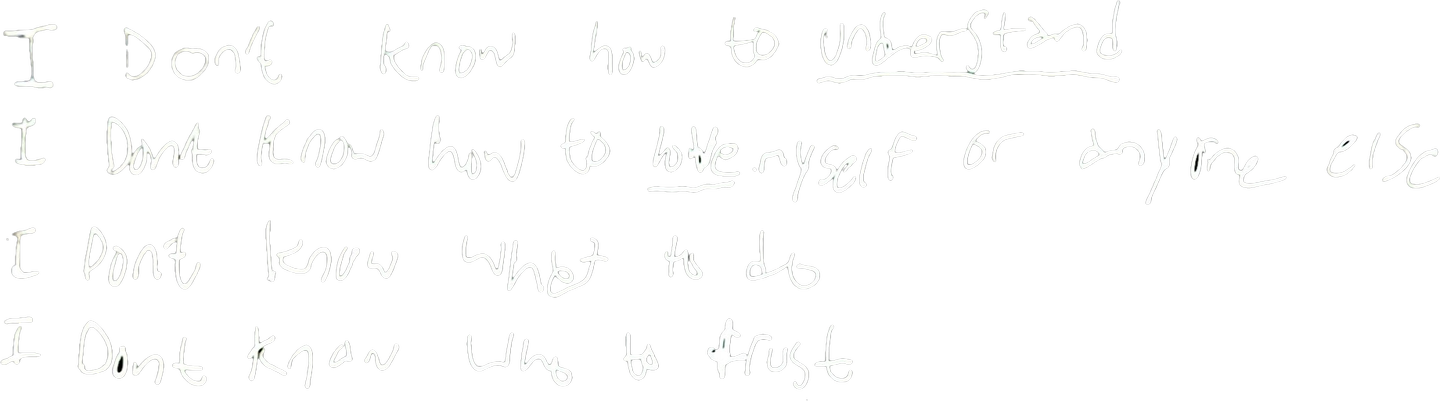 I Don't know how to understand
I Dont know how to love myself or anyone else
I Don't know what to do
I Dont know who to trust